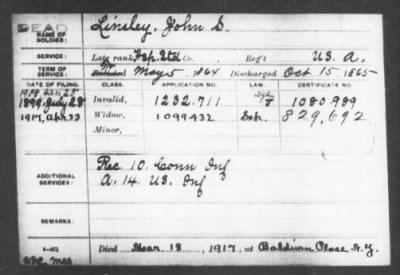 DEAD
NAME OF SOLDIER: Linsley, John S.
SERVICE: Late rank Hsp. Std Co. Reg't U.S. A.
TERM OF SERVICE: Enlisted May 5, 1864 Discharged Oct 15, 1865
DATE OF FILING. CLASS. APPLICATION NO. LAW CERTIFICATE NO.
1899, July 28 Invalid, 1232.711 1080.989
1917, Apr. 23 Widow, 1099432 829,692
Minor,
ADDITIONAL SERVICES: Rec. 10. Conn Inf
A. 14. U.S. Inf
REMARKS:
Died Mar 18, 1917, at Baldwin Place, N.Y.